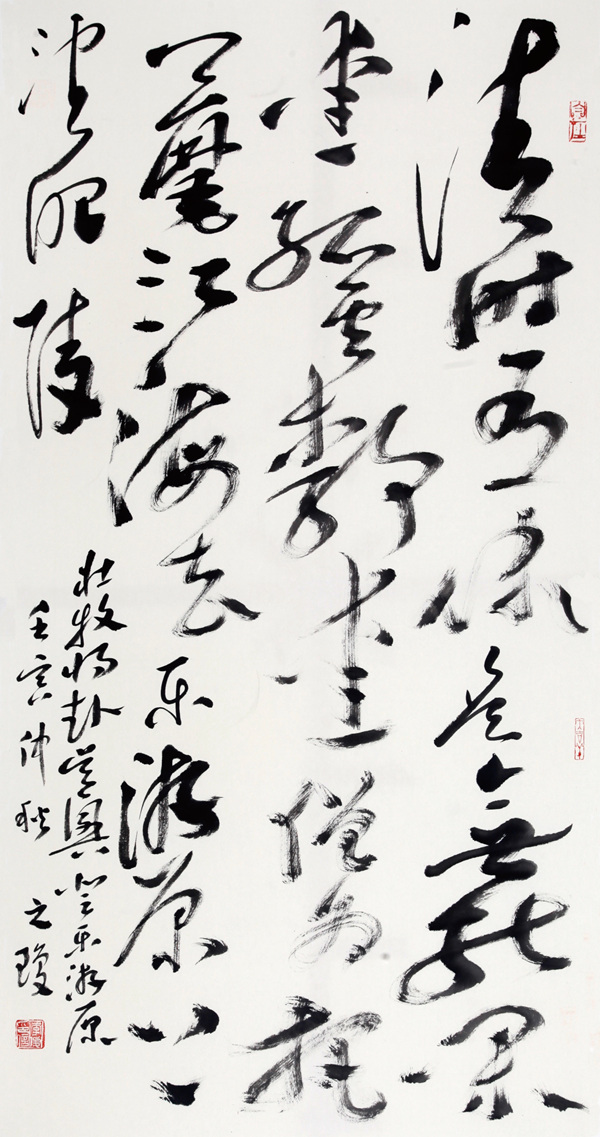 清时有味是無能闲
爱孤雲静爱僧欲把
一麾江海去乐游原上
望昭陵
杜牧将赴吴興登乐游原
壬寅仲秋 之瓊